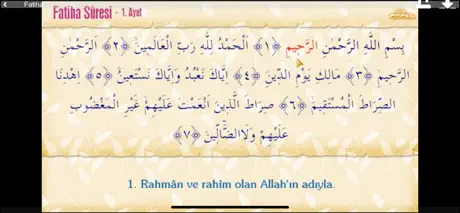 Fatiha
Fatiha Sûresi - 1. Ayet
بِسْمِ اللّٰهِ الرَّحْمٰنِ الرَّحٖيمِ ﴿١﴾ اَلْحَمْدُ لِلّٰهِ رَبِّ الْعَالَمٖينَ ﴿٢﴾ اَلرَّحْمٰنِ
الرَّحٖيمِ ﴿٣﴾ مَالِكِ يَوْمِ الدّٖينِ ﴿٤﴾ اِيَّاكَ نَعْبُدُ وَاِيَّاكَ نَسْتَعٖينُ ﴿٥﴾ اِهْدِنَا
الصِّرَاطَ الْمُسْتَقٖيمَ ﴿٦﴾ صِرَاطَ الَّذٖينَ اَنْعَمْتَ عَلَيْهِمْ غَيْرِ الْمَغْضُوبِ
عَلَيْهِمْ وَلَا الضَّٓالّٖينَ ﴿٧﴾
1. Rahmân ve rahîm olan Allah'ın adıyla.